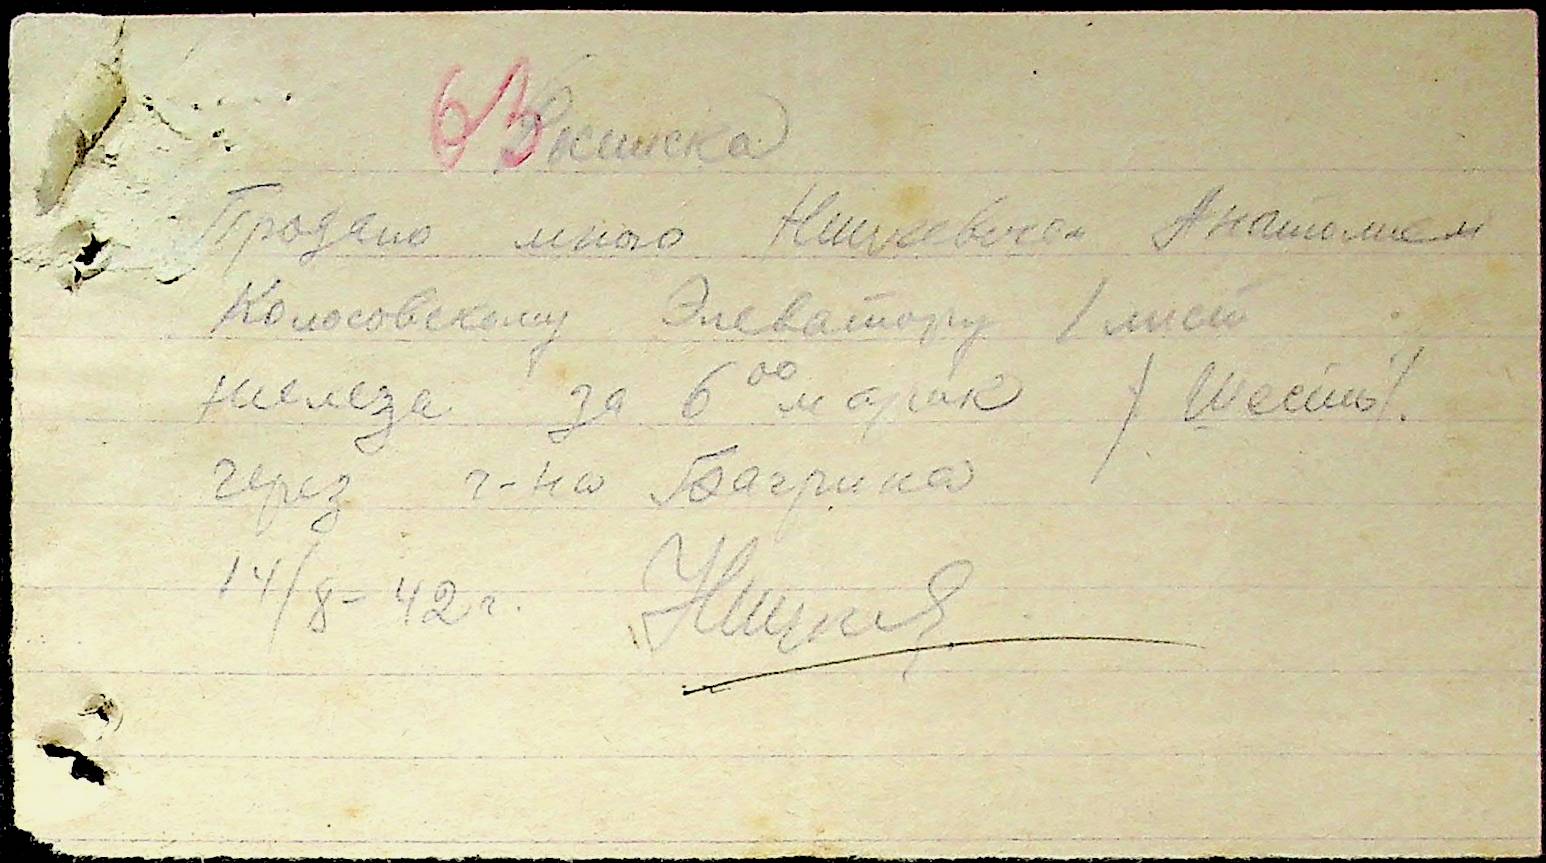 63
Росписка
Продано мною Ницкевичем Анатолием
Колосовскому Элеватору 1 лист
железа за 6 ⁰⁰ марок / Шесть/.
через г-на Багрина
14/8-42 г.